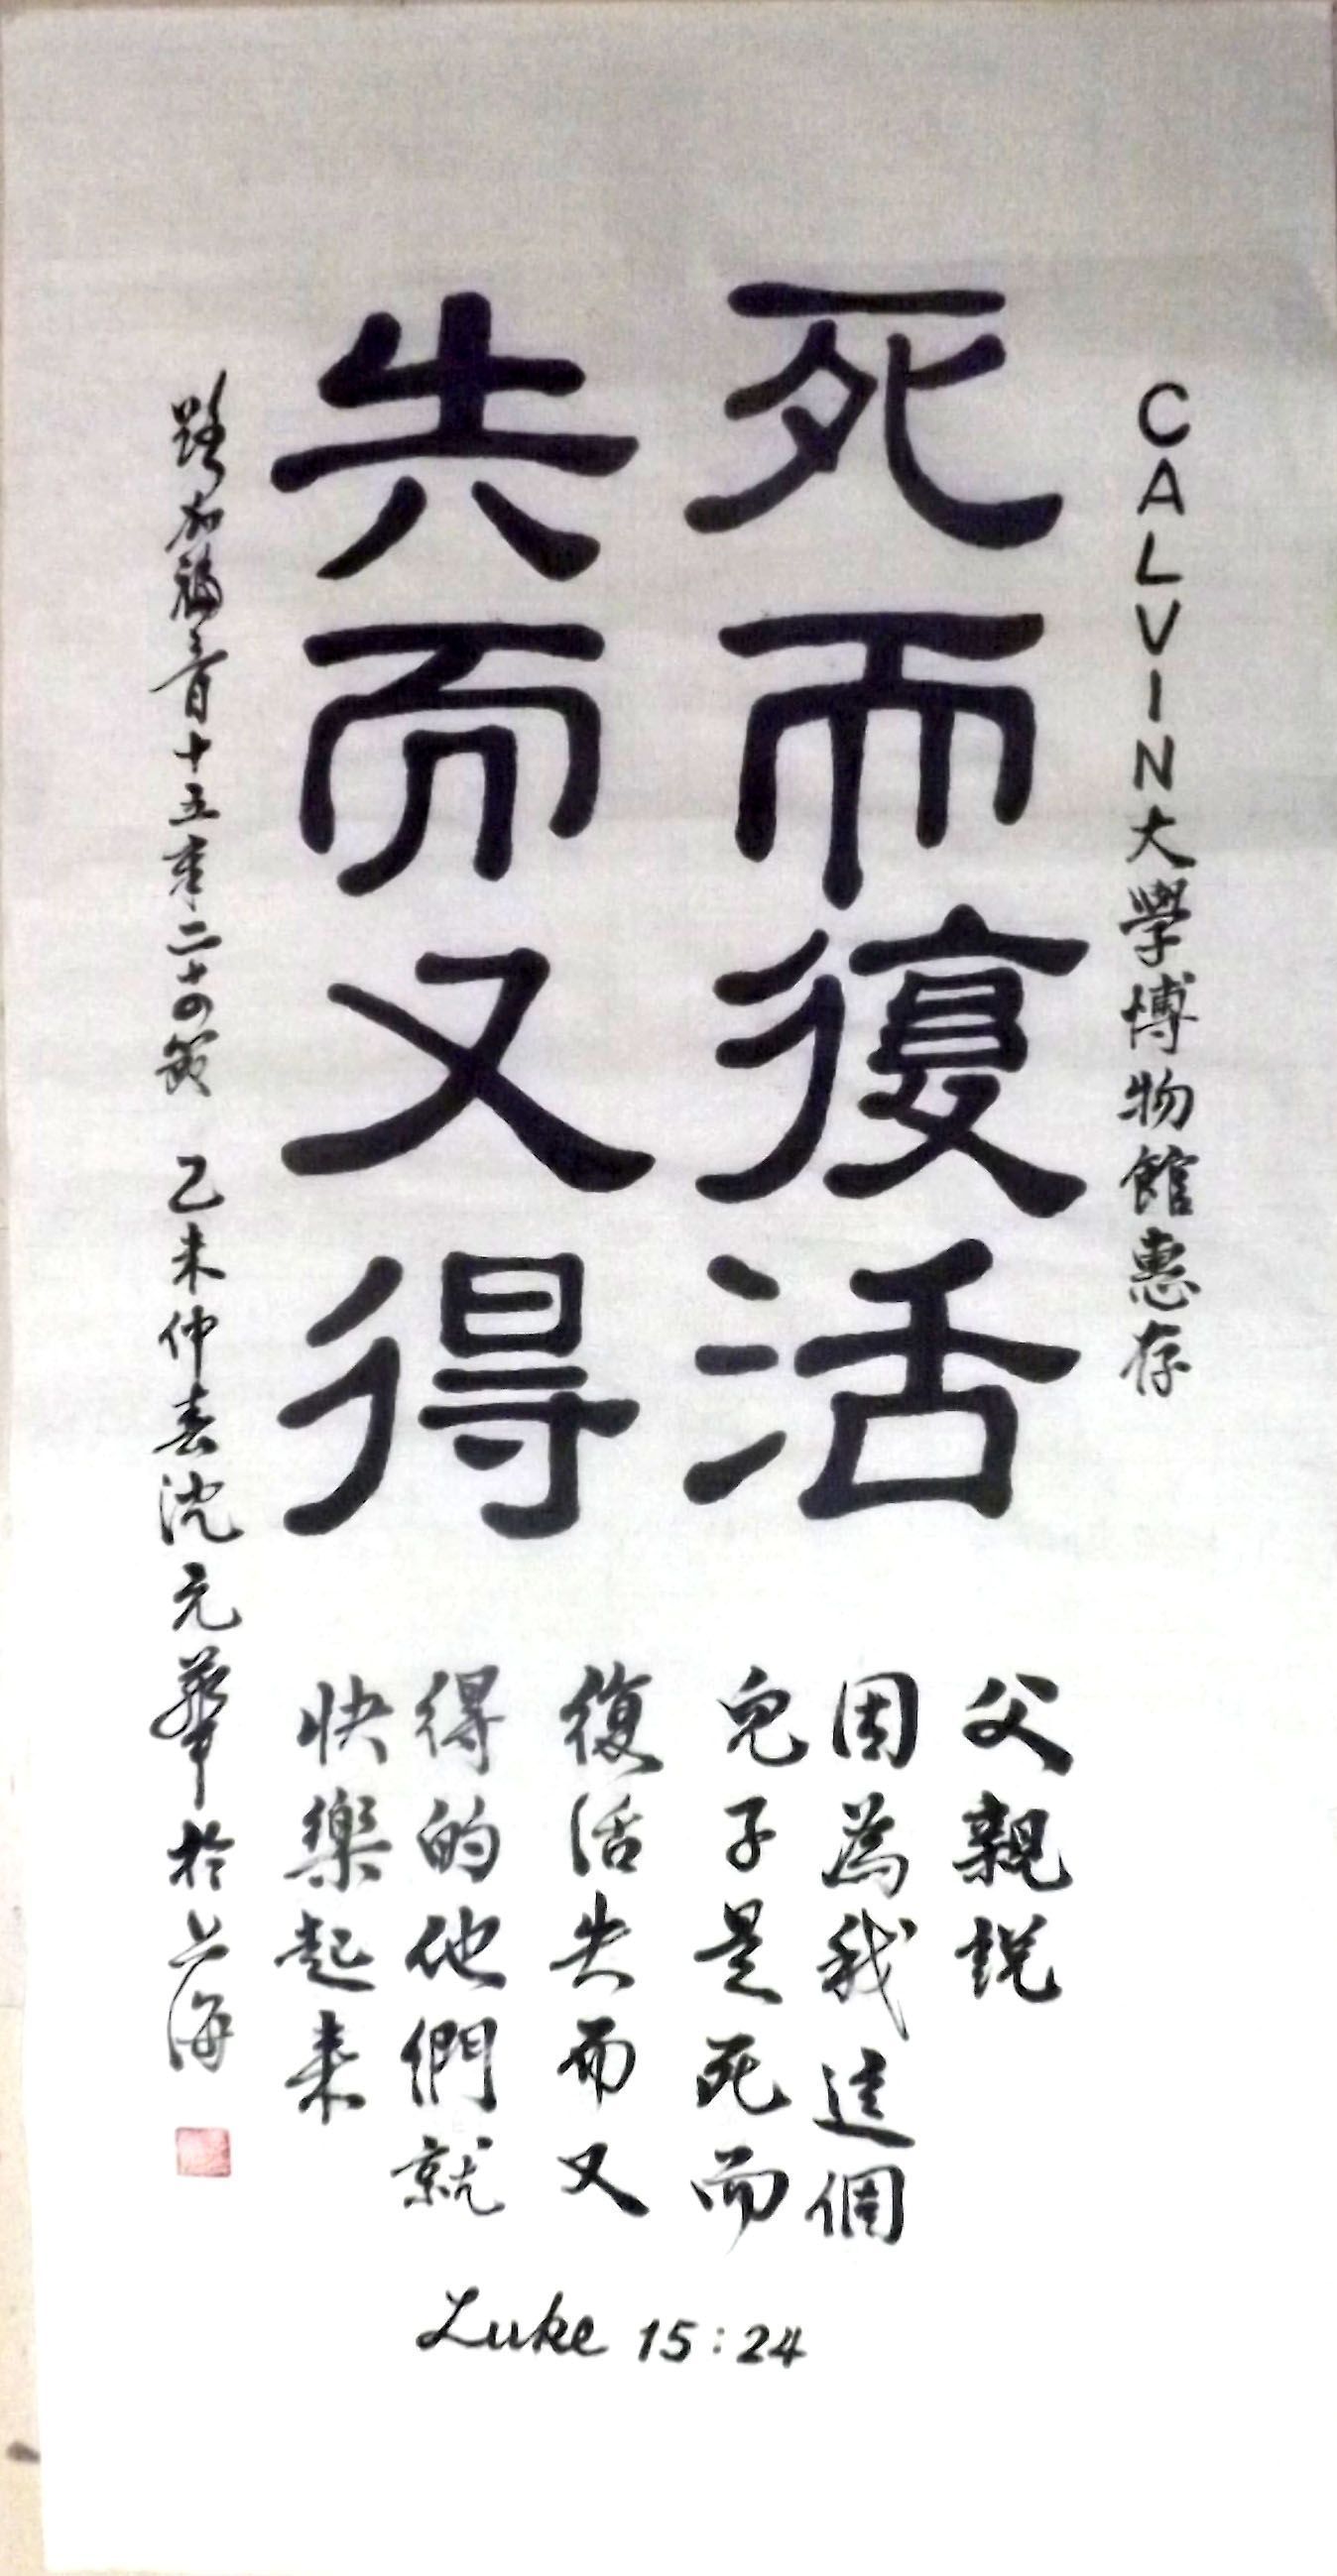 CALVIN大學博物館惠存
死而復活
失而又得
父親說
因為我這個
兒子是死而
復活失而又
得的他們就
快樂起來
路加福音十五章二十四節 乙未仲春沈元華於上海
Luke 15:24